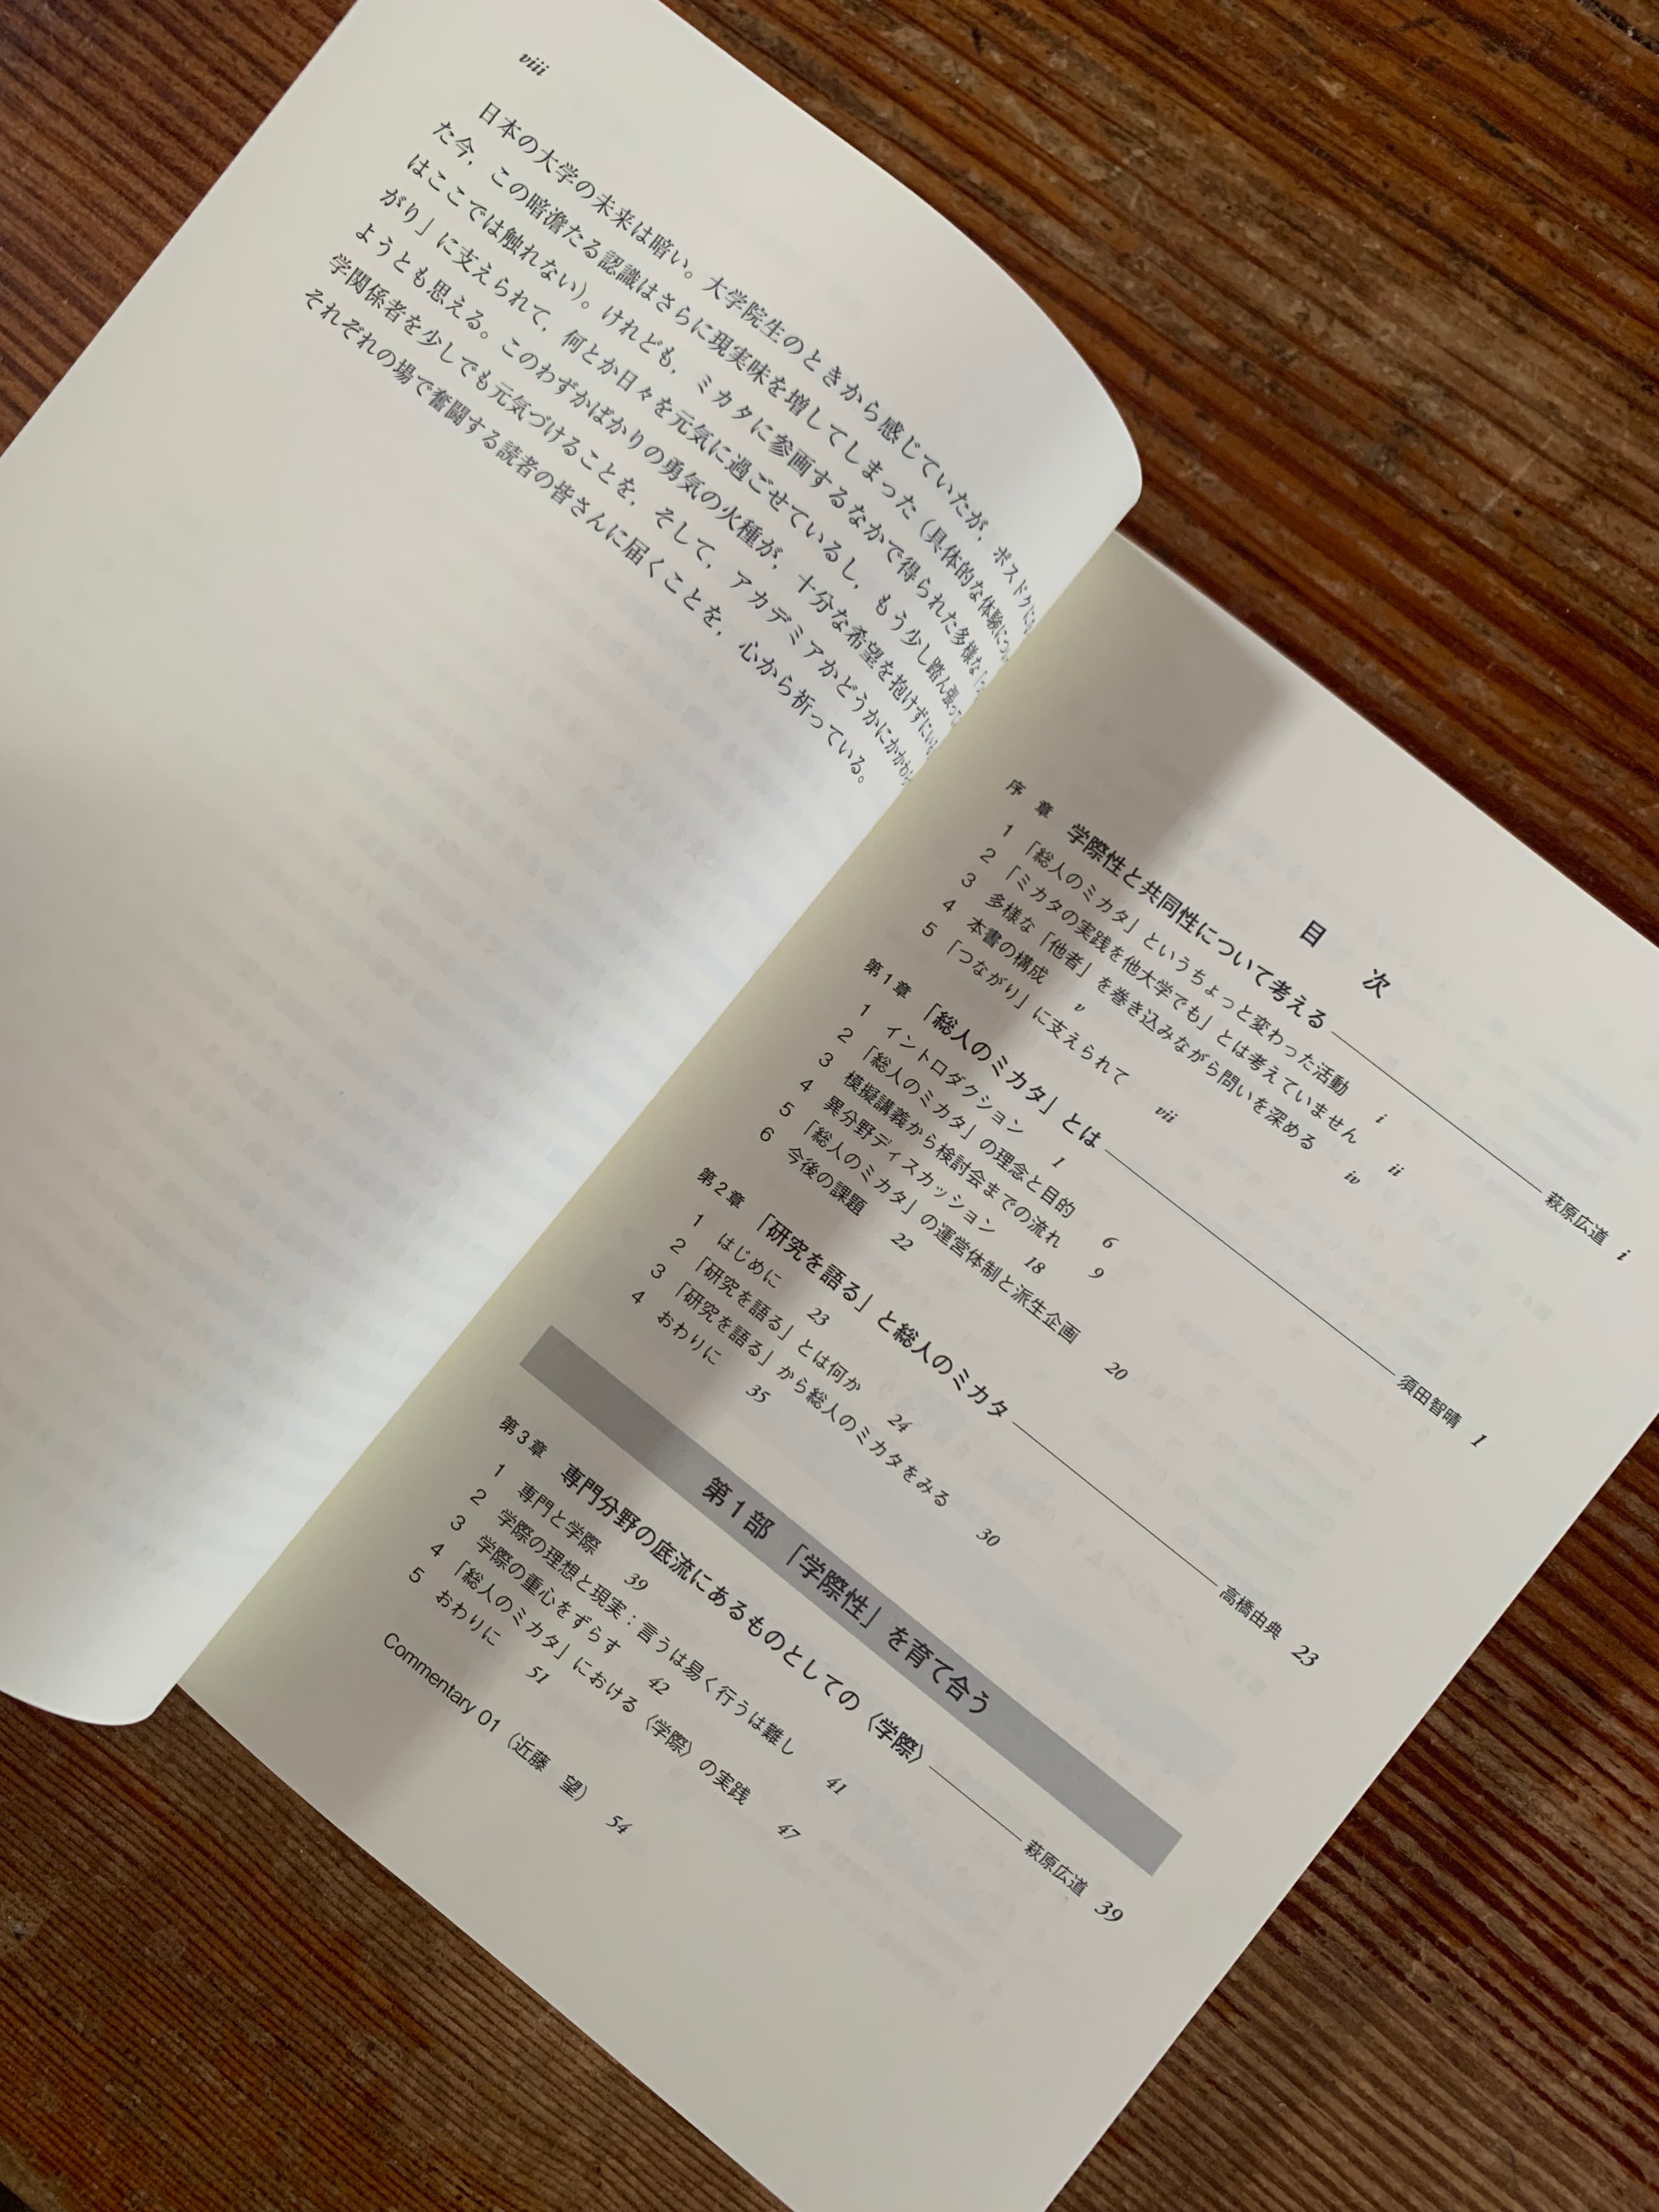 viii
日本の大学の未来は暗い。大学院生のときから感じていたが，ポスドクに
た今，この暗澹たる認識はさらに現実味を増してしまった（具体的な体験につ
はここでは触れない）。けれども，ミカタに参画するなかで得られた多様な「つ
がり」に支えられて，何とか日々を元気に過ごせているし，もう少し踏ん張って
ようとも思える。このわずかばかりの勇気の火種が，十分な希望を抱けずにいる
学関係者を少しでも元気づけることを，そして，アカデミアかどうかにかかわら
それぞれの場で奮闘する読者の皆さんに届くことを，心から祈っている。
目　次
序　章　学際性と共同性について考える　萩原広道　i
1　「総人のミカタ」というちょっと変わった活動　i
2　「ミカタの実践を他大学でも」とは考えていません　ii
3　多様な「他者」を巻き込みながら問いを深める　iv
4　本書の構成　v
5　「つながり」に支えられて　vii
第1章　「総人のミカタ」とは　須田智晴　1
1　イントロダクション　1
2　「総人のミカタ」の理念と目的　6
3　模擬講義から検討会までの流れ　9
4　異分野ディスカッション　18
5　「総人のミカタ」の運営体制と派生企画　20
6　今後の課題　22
第2章　「研究を語る」と総人のミカタ　高橋由典　23
1　はじめに　23
2　「研究を語る」とは何か　24
3　「研究を語る」から総人のミカタをみる　30
4　おわりに　35
第1部　「学際性」を育て合う
第3章　専門分野の底流にあるものとしての〈学際〉　萩原広道　39
1　専門と学際　39
2　学際の理想と現実：言うは易く行うは難し　41
3　学際の重心をずらす　42
4　「総人のミカタ」における〈学際〉の実践　47
5　おわりに　51
Commentary 01（近藤　望）　54